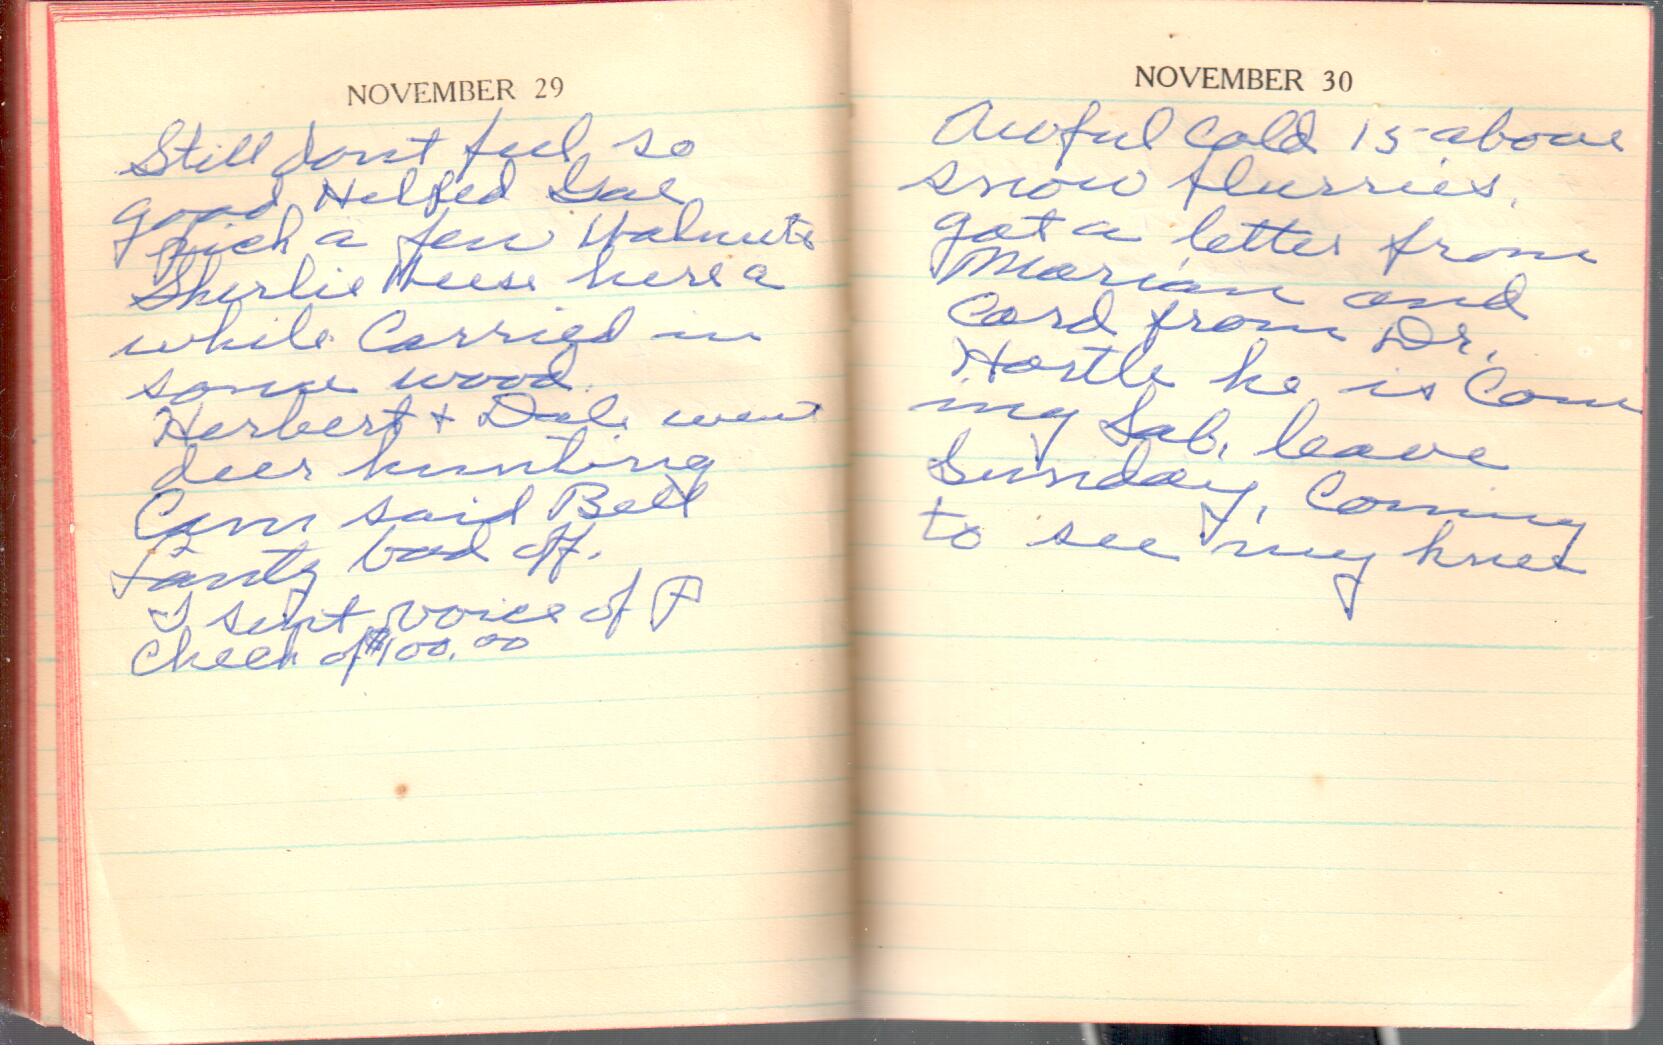 NOVEMBER 29
Still dont feel so
good Helped Gale
pick a few Walnuts
Sherlie Weese here a
while Carried in
some wood.
Herbert + Dale went
deer hunting
Cam said Bell
Lantz bad off.
I sent voice of P
Check of $100.00
NOVEMBER 30
Awful Cold 15 above
snow flurries.
got a letter from
Marian and
Card from Dr.
he is Com
ing Sab. leave
Sunday, Coming
to see my knee